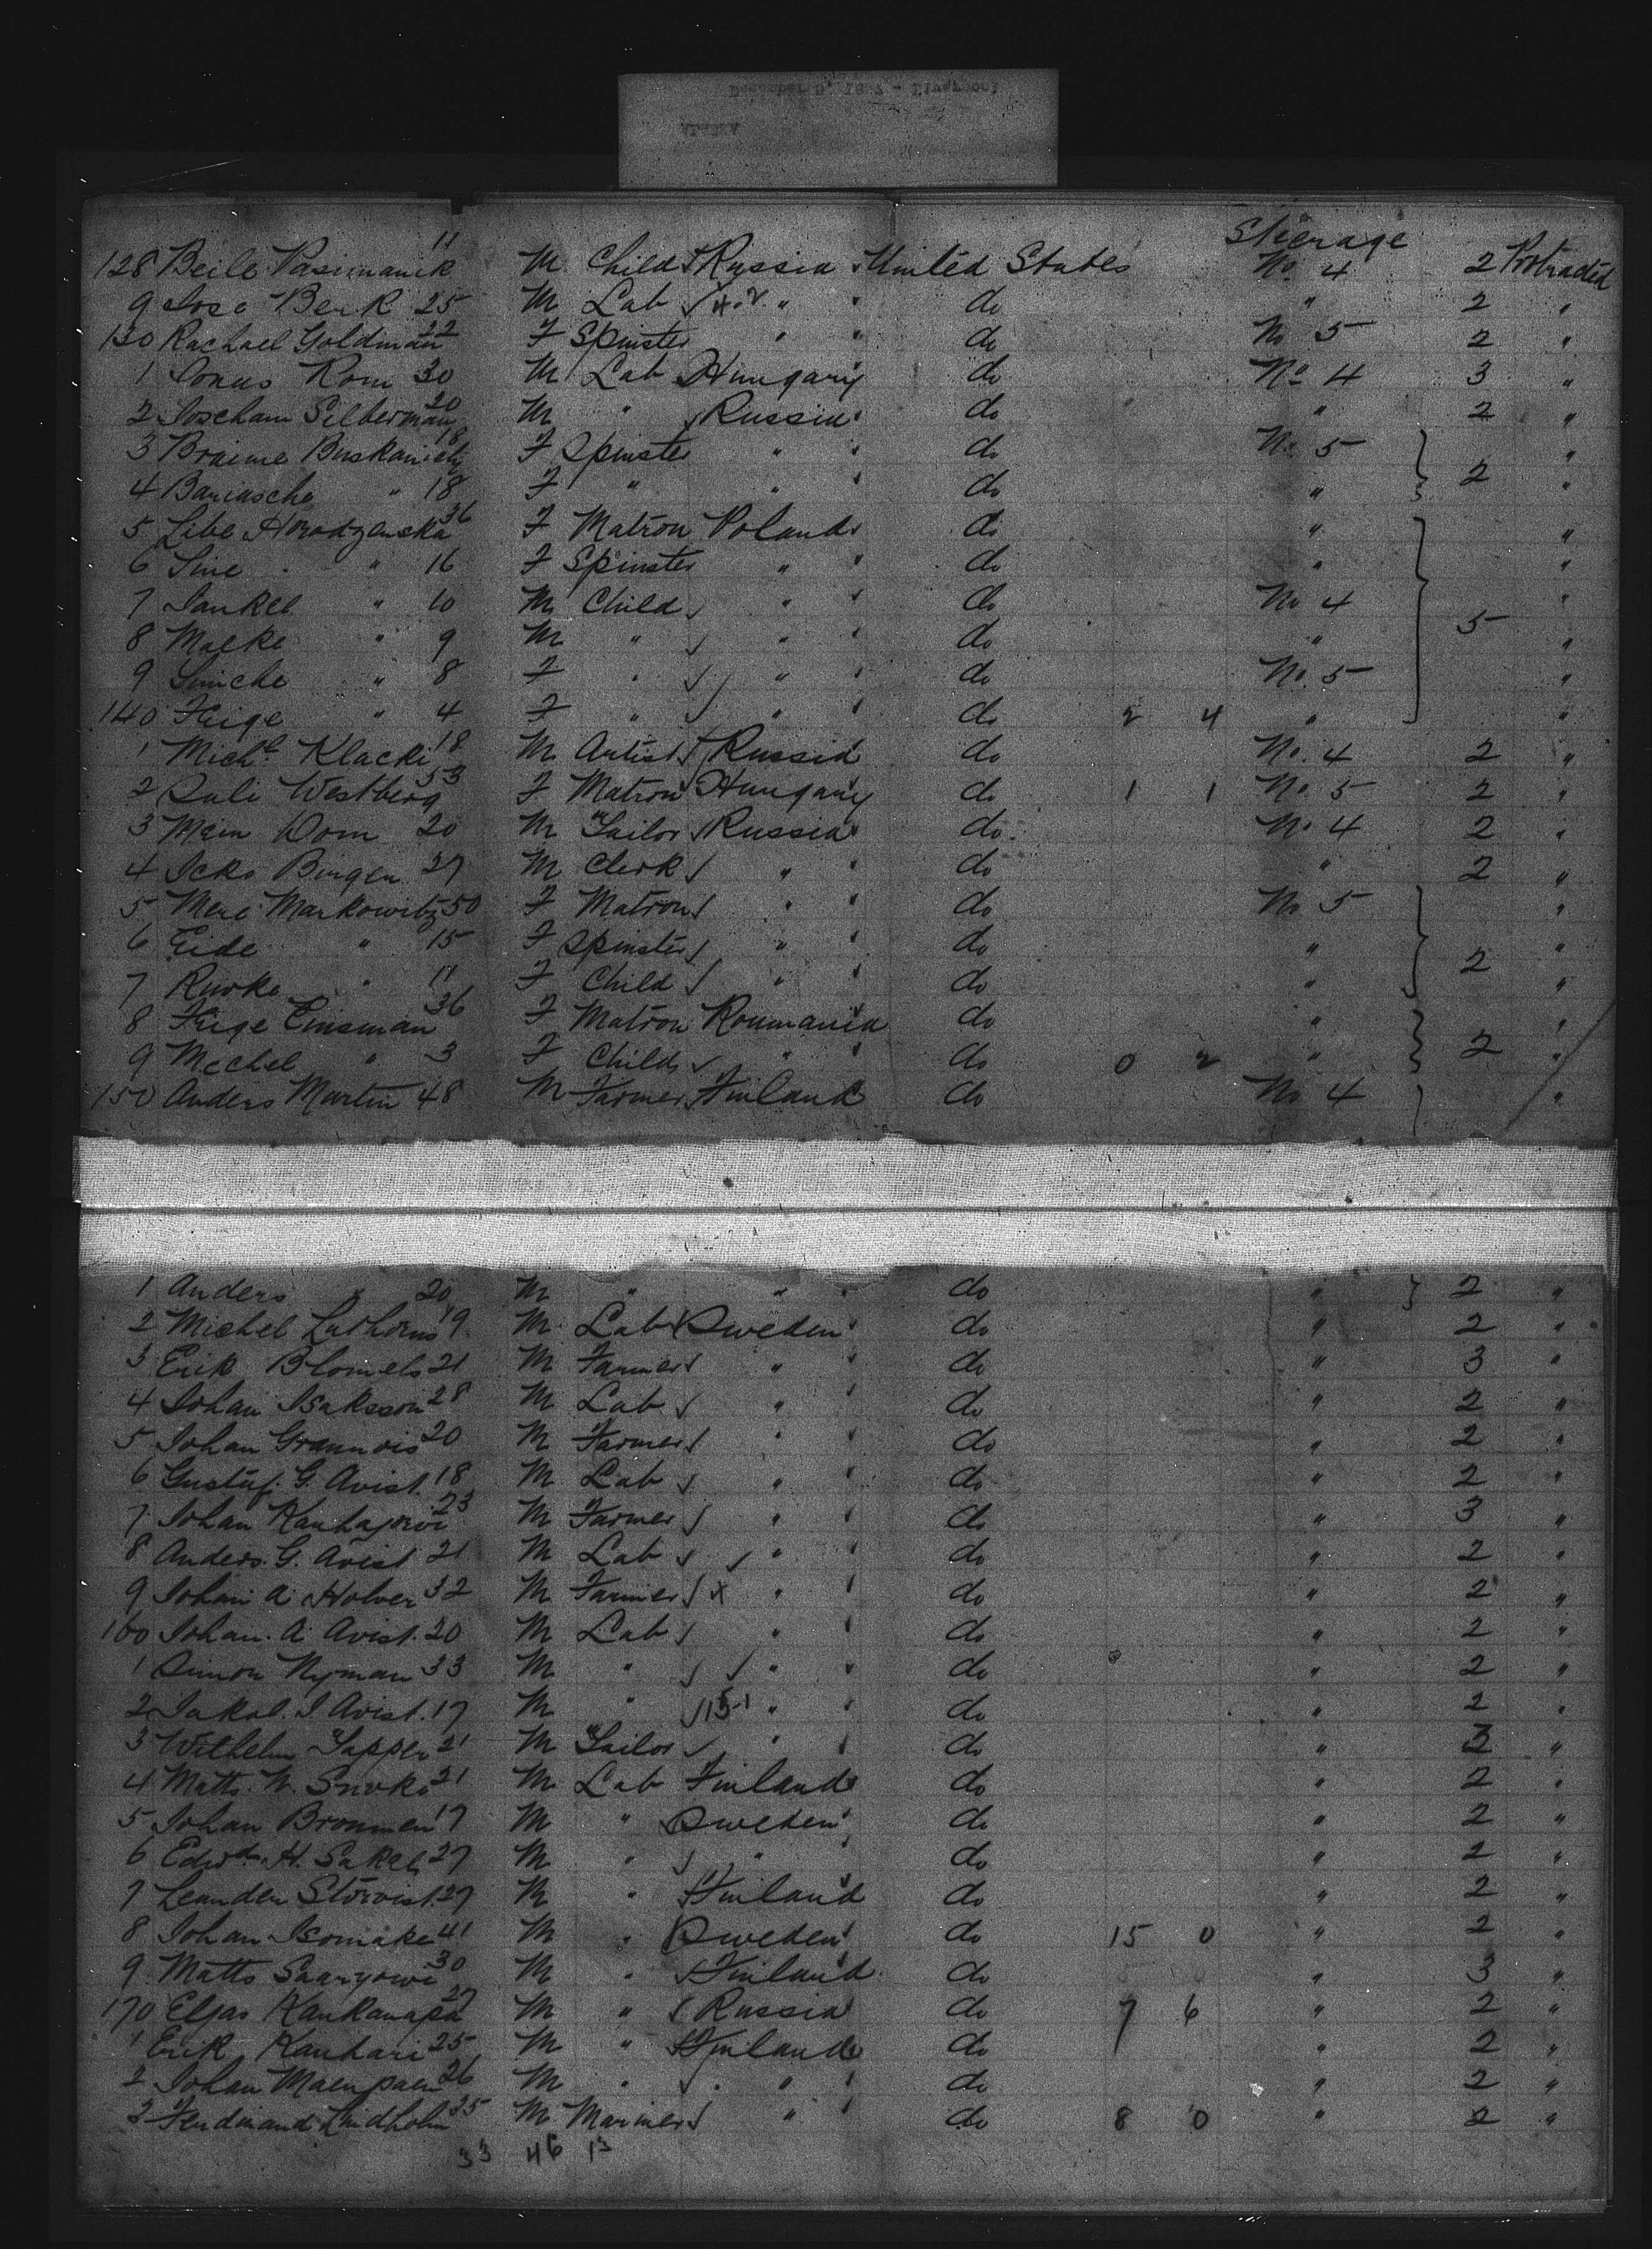 Steerage
128 Beile Pasimanik 11 M Child Russia United States No. 4 2 Protracted
9 Jose Berk 25 M Lab " " do " 2 "
130 Rachael Goldman 22 F Spinster " " do No 5 2 "
1 Jonas Rom 30 M Lab Hungary do No 4 3 "
2 Joscham Silberman 20 M " Russia do " 2 "
3 Braime 18 F Spinster " " do No. 5 "
4 " 18 F " " do " 2 "
5 Libe Horodzenska 36 F Matron Poland do " "
6 Sine " 16 F Spinster " " do " "
7 Jankel " 10 M Child " " do No 4 "
8 Malke " 9 M " " do " 5 "
9 Simche " 8 F " " " do No. 5 "
140 Feige " 4 F " " do 2 4 " "
1 Michl. Klacki 18 M Artist Russia do No. 4 2 "
2 Sali Westberg 53 F Matron Hungary do 1 1 No. 5 2 "
3 Mein Dorn 20 M Tailor Russia do No 4 2 "
4 Icko Bingen 27 M Clerk " " do " 2 "
5 Mere Markowitz 50 F Matron " " do No 5 "
6 Eide " 15 F Spinster " " do " "
7 Riwke " 11 F Child " " do " 2 "
8 Feige Einsman 36 F Matron Roumania do " "
9 Mechel " 3 F Child " " do 0 2 " 2 "
150 Anders Martin 48 M Farmer Finland do No 4 "
1 Anders " 20 M " " " do " 2 "
2 Michel 19 M Lab Sweden do " 2 "
3 Erik Blomels 21 M Farmer " " do " 3 "
4 Johan Isaksson 28 M Lab " " do " 2 "
5 Johan 20 M Farmer " " do " 2 "
6 Gustaf. G. Avist. 18 M Lab " " do " 2 "
7 Johan Kauhajorvi 23 M Farmer " " do " 3 "
8 Anders. G. Avist 21 M Lab " " do " 2 "
9 Johan A Holver 32 M Farmer x " " do " 2 "
160 Johan. A. Avist. 20 M Lab " " do " 2 "
1 Simon Nyman 33 M " " " do " 2 "
2 Jakob. J. Avist. 17 M " " " do " 2 "
3 Wilhelm Tapper 21 M Tailor " " do " 3 "
4 Matts. W. 21 M Lab Finland do " 2 "
5 Johan Bronmen 17 M " Sweden do " 2 "
6 Edwd. H. Sakel 27 M " " " do " 2 "
7 Leander Storvist. 27 M " Finland do " 2 "
8 Johan Isomake 41 M " Sweden do 15 0 " 2 "
9 Matts 30 M " Finland do " 3 "
170 Eljas Kankanapa 27 M " Russia do 7 6 " 2 "
1 Erik Kauhari 25 M " Finland do " 2 "
2 Johan Maenpaen 26 M " " " do " 2 "
3 Ferdinand Lindholm 25 M Mariner " " do 8 0 " 2 "
33 46 13